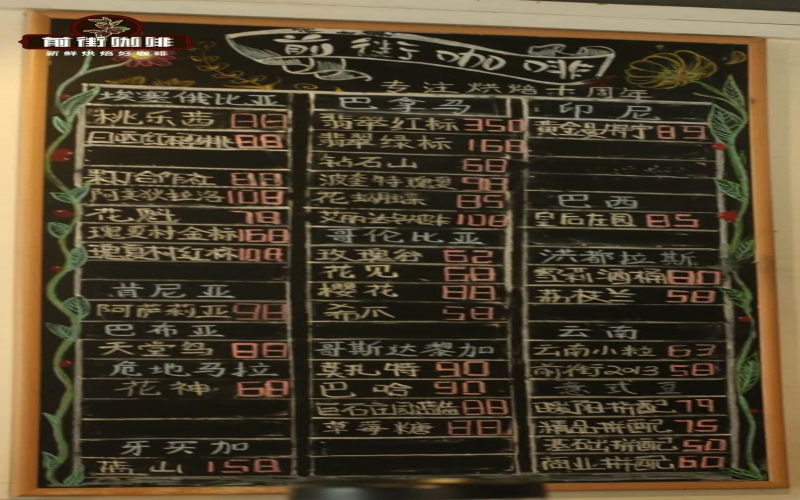 前街咖啡
新鲜烘焙好咖啡
前街咖啡
专注烘焙十周年
埃塞俄比亚
桃乐茜 88
88
果丁合作社 88
阿麦狄拉洛 108
花魁 78
瑰夏村金标 168
瑰夏村红标 108
肯尼亚
阿萨利亚 98
巴布亚
天堂鸟 88
危地马拉
花神 68
牙买加
蓝山 158
巴拿马
翡翠红标 350
翡翠绿标 168
钻石山 68
波奎特瑰夏 98
花蝴蝶 85
108
哥伦比亚
玫瑰谷 62
花见 68
樱花 88
希爪 58
哥斯达黎加
莫扎特 90
巴哈 90
巨石庄园 88
草莓糖 88
印尼
黄金曼特宁 89
巴西
皇后庄园 85
洪都拉斯
雪莉酒桶 80
荔枝兰 58
云南
云南小粒 63
前街2013 58
意式豆
暖阳拼配 79
精品拼配 75
基础拼配 50
商业拼配 60